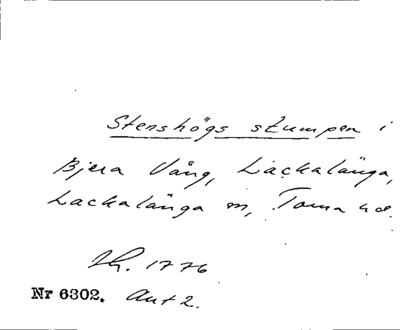 Stenshögs stumpen i
Bjera Vång, Lackalänga,
Lackalänga sn, Torna hd.
1776
Nr 6302. Akt 2.